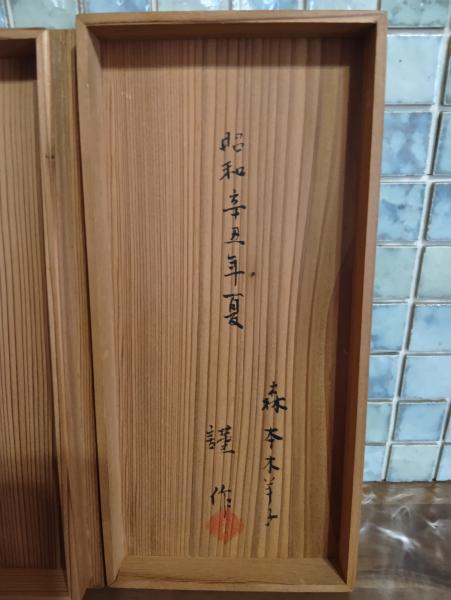 昭和辛丑年夏
森本木羊子
謹作